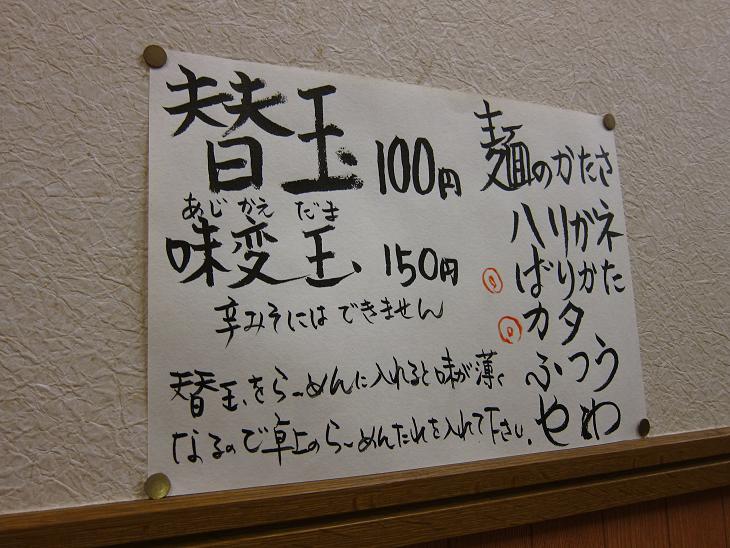 替玉 100円
あじ かえ だま
味変玉 150円
辛みそにはできません
替玉をらーめんに入れると味が薄く
なるので卓上のらーめんたれを入れて下さい。
麺のかたさ
ハリガネ
ばりかた
カタ
ふつう
やわ